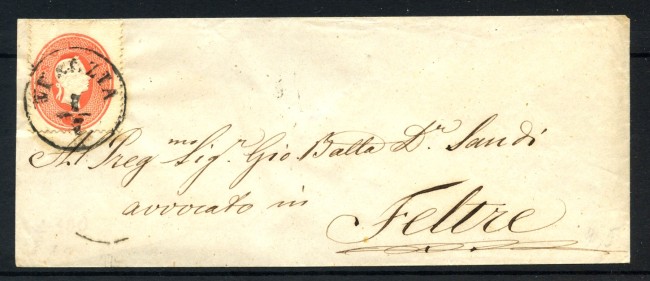 VENEZIA
8
7
Al Preg.mo Sig.r Gio Batta D.r Sandi
avvocato in
Feltre